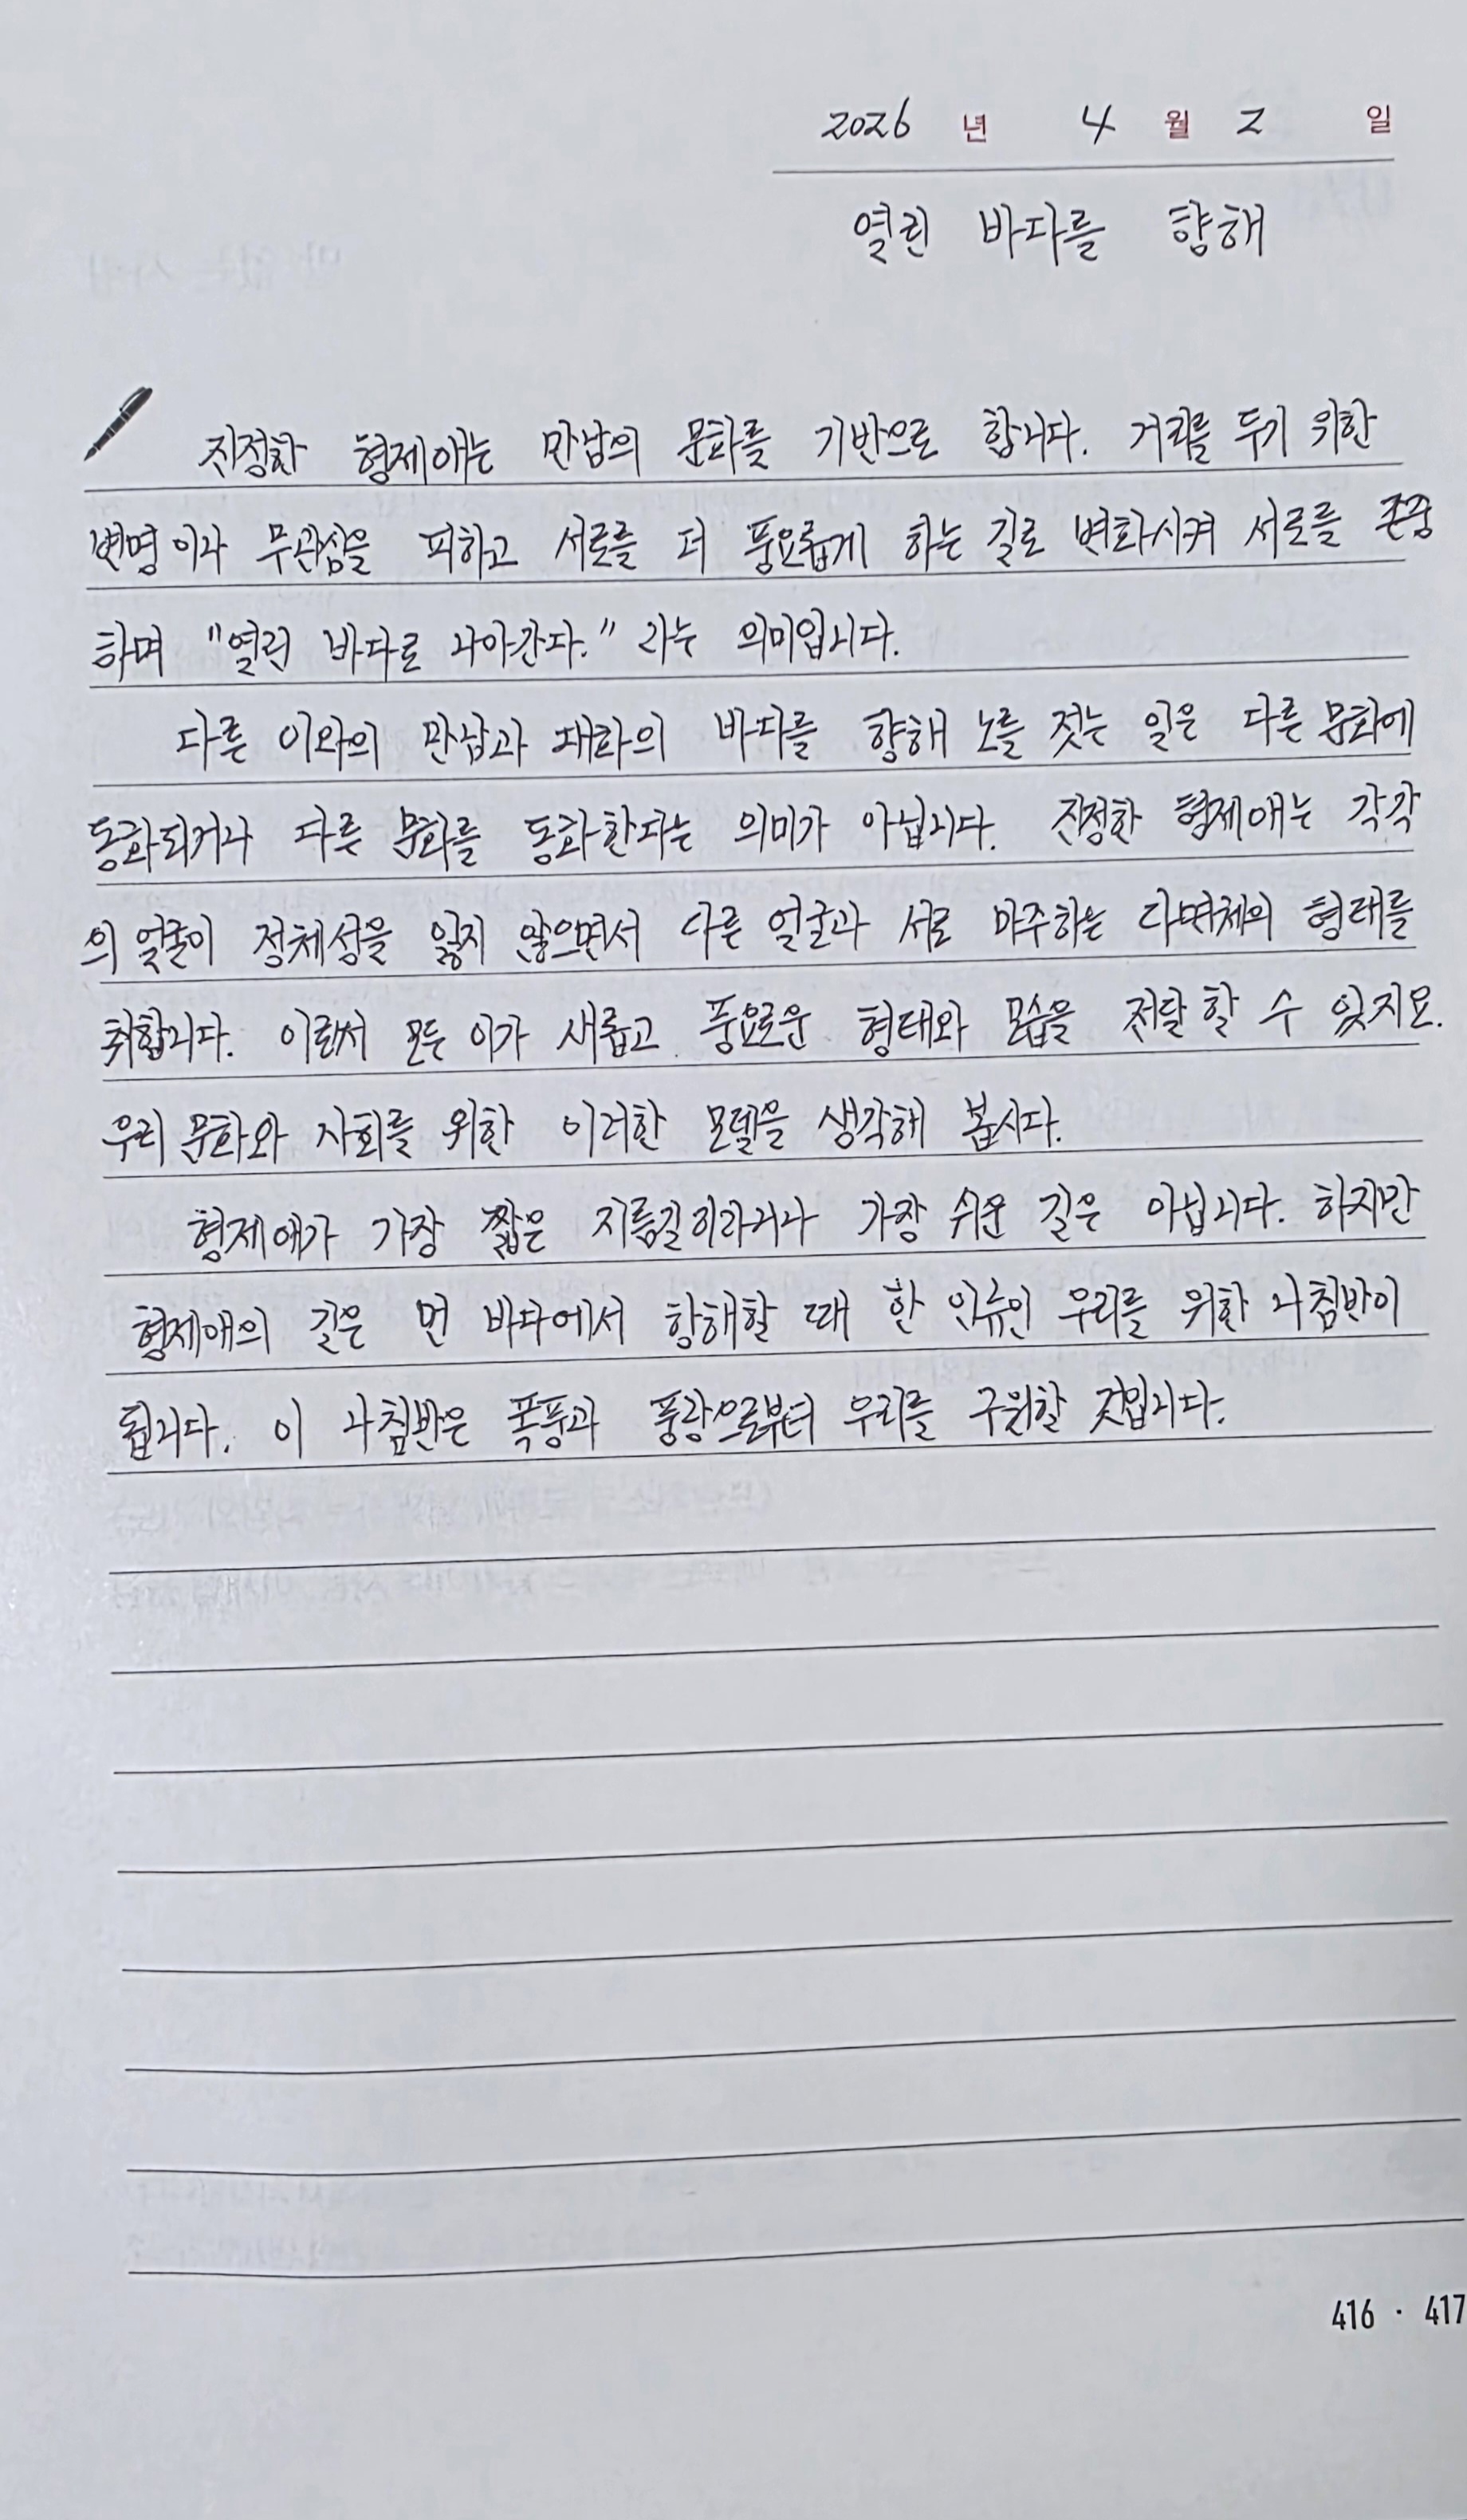 2026 년 4 월 2 일
열린 바다를 향해
진정한 형제애는 만남의 문화를 기반으로 합니다. 거리를 두기 위한
변명이나 무관심을 피하고 서로를 더 풍요롭게 하는 길로 변화시켜 서로를 존중
하며 "열린 바다로 나아간다." 라는 의미입니다.
다른 이와의 만남과 대화의 바다를 향해 노를 젓는 일은 다른 문화에
동화되거나 다른 문화를 동화한다는 의미가 아닙니다. 진정한 형제애는 각각
의 얼굴이 정체성을 잃지 않으면서 다른 얼굴과 서로 마주하는 다면체의 형태를
취합니다. 이로써 모든 이가 새롭고 풍요로운 형태와 모습을 전달할 수 있지요.
우리 문화와 사회를 위한 이러한 모델을 생각해 봅시다.
형제애가 가장 짧은 지름길이라거나 가장 쉬운 길은 아닙니다. 하지만
형제애의 길은 먼 바다에서 항해할 때 한 인류인 우리를 위한 나침반이
됩니다. 이 나침반은 폭풍과 풍랑으로부터 우리를 구원할 것입니다.
416 · 417